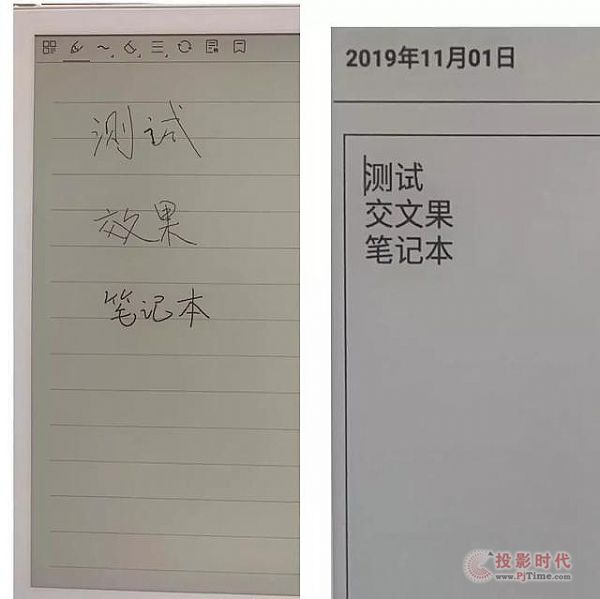 测试
效果
笔记本
2019年11月01日
测试
交文果
笔记本
投影时代
www.PjTime.com